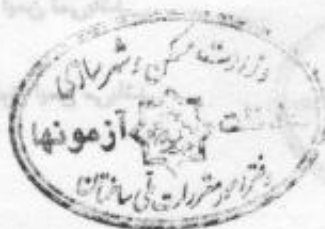 وزارت مسکن و شهرسازی
آزمونها
دفتر امور مقررات ملی ساختمان